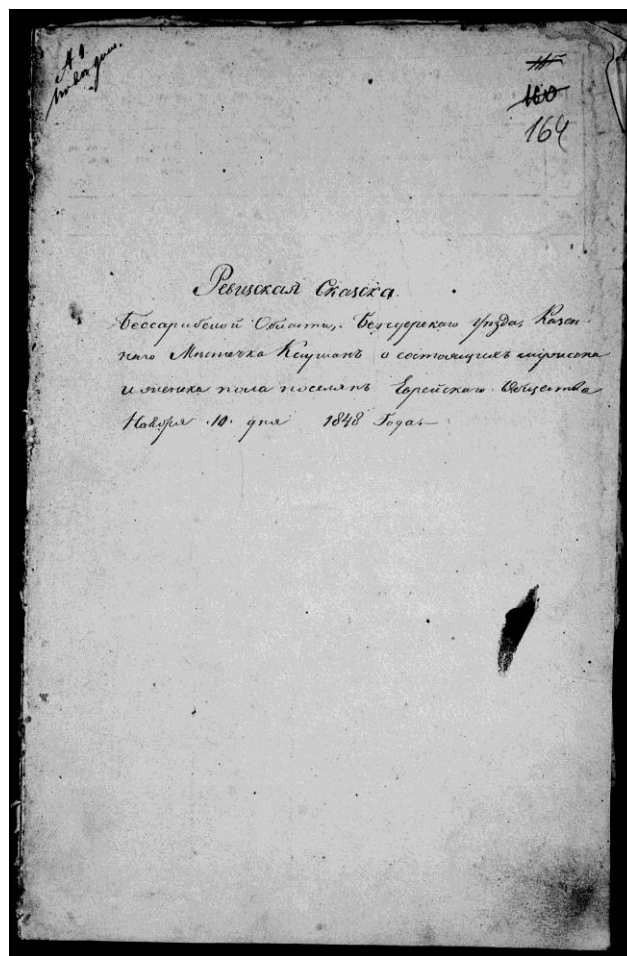 № 1
115
160
164
Ревизская Сказка.
Бессарабской Области, Бендерского Уезда, Казен-
наго Местечка Каушанъ о состоящихъ мужеска
и женска пола поселянъ Еврейскаго Общества
Ноября 10. дня 1848 Года